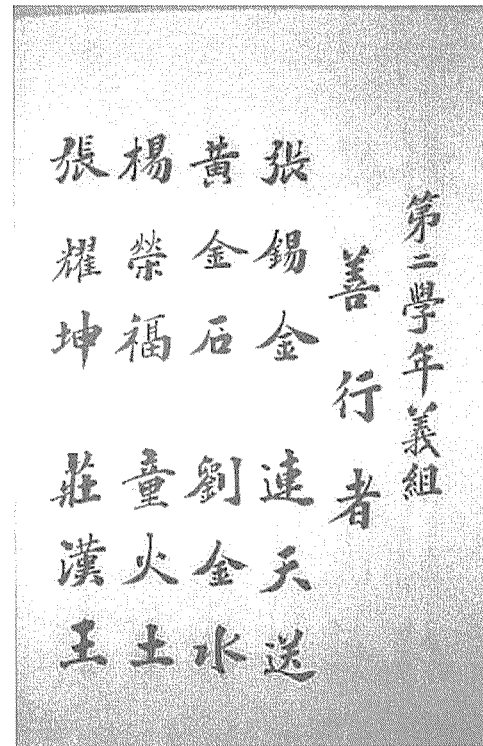 第二學年義組
善行者
張錫金 連天送
黃金石 劉金水
楊榮福 童火土
張耀坤 莊漢王